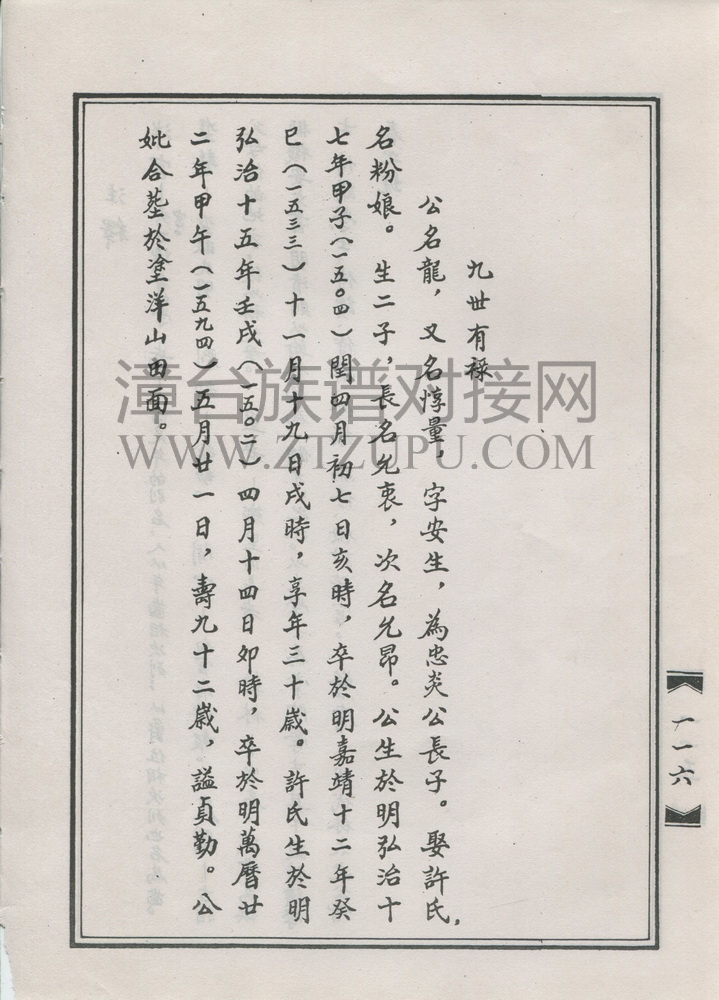 九世有祿
公名龍，又名惇量，字安生，為忠炎公長子。娶許氏，
名粉娘。生二子，長名允衷，次名允昂。公生於明弘治十
七年甲子（一五〇四）閏四月初七日亥時，卒於明嘉靖十二年癸
巳（一五三三）十一月十九日戌時，享年三十歲。許氏生於明
弘治十五年壬戌（一五〇二）四月十四日卯時，卒於明萬曆廿
二年甲午（一五九四）五月廿一日，壽九十二歲，謚貞勤。公
妣合塟於塗洋山田面。
一一六
漳台族谱对接网
WWW.ZTZUPU.COM